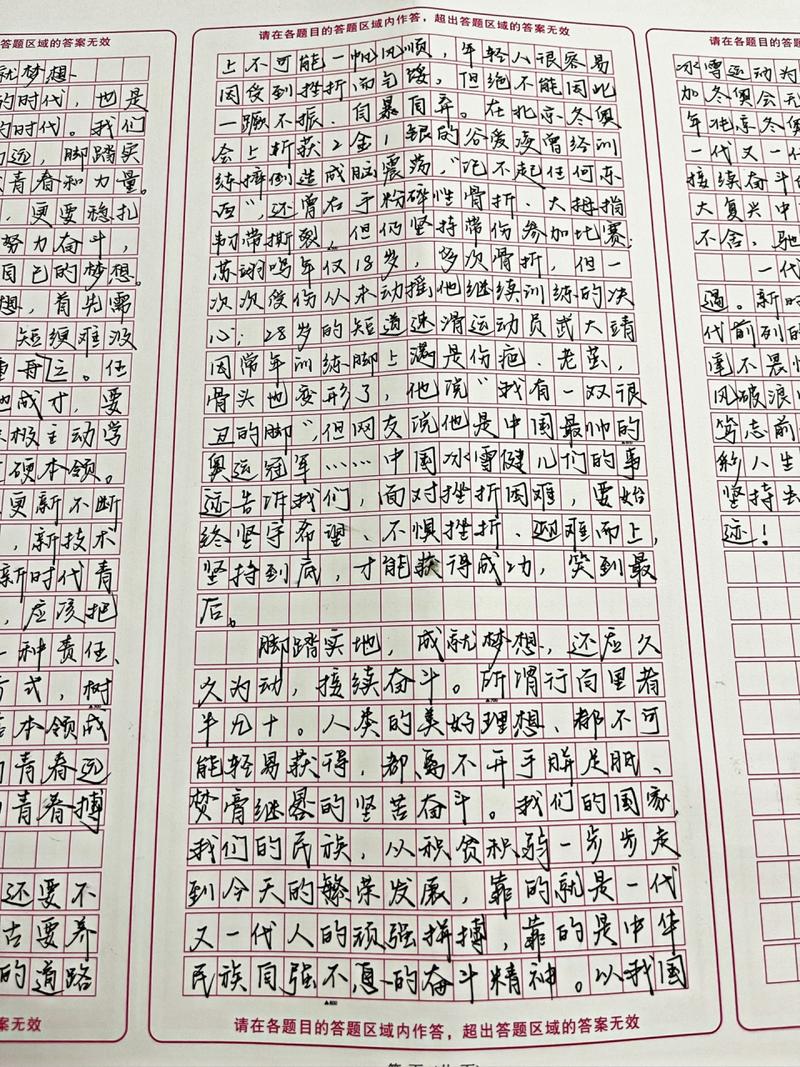 答题区域的答案无效
就梦想、
的时代，也是
的时代。我们
高远，脚踏实
青春和力量。
，更要稳扎
努力奋斗，
自己的梦想。
想，首先需
短绠难汲
重再立。任
成才，要
积极主动学
硬本领。
更新不断
，新技术
新时代青
，应该把
一种责任、
方式，树
本领成
青春远
青春搏
还要不
古要养
的道路
案无效
请在各题目的答题区域内作答，超出答题区域的答案无效
上不可能一帆风顺，年轻人很容易
因受到挫折而气馁，但绝不能因此
一蹶不振、自暴自弃。在北京冬奥
会上斩获2金1银的谷爱凌曾经训
练摔倒造成脑震荡，“记不起任何东
西”，还曾右手粉碎性骨折、大拇指
韧带撕裂，但仍坚持带伤参加比赛；
苏翊鸣年仅18岁，多次骨折，但一
次次受伤从未动摇他继续训练的决
心；28岁的短道速滑运动员武大靖
因常年训练脚上满是伤疤、老茧，
骨头也变形了，他说“我有一双很
丑的脚”，但网友说他是中国最帅的
奥运冠军……中国冰雪健儿们的事
迹告诉我们，面对挫折困难，要始
终坚守希望、不惧挫折、迎难而上，
坚持到底，才能获得成功，笑到最
后。
脚踏实地，成就梦想，还应久
久为动，接续奋斗。所谓行百里者
半九十。人类的美好理想、都不可
能轻易获得，都离不开手胼足胝、
焚膏继晷的坚苦奋斗。我们的国家，
我们的民族，从积贫积弱一步步走
到今天的繁荣发展，靠的就是一代
又一代人的顽强拼搏，靠的是中华
民族自强不息的奋斗精神。以我国
▲800
请在各题目的答题区域内作答，超出答题区域的答案无效
请在各题目的答
冰雪运动为
加冬奥会无
年北京冬奥
一代又一代
接续奋斗的
大复兴中
不舍，驰
一代
遇。新时
代前列的
更不畏惧
风破浪
笃志前
的人生
坚持去
迹！
请在各题目的答